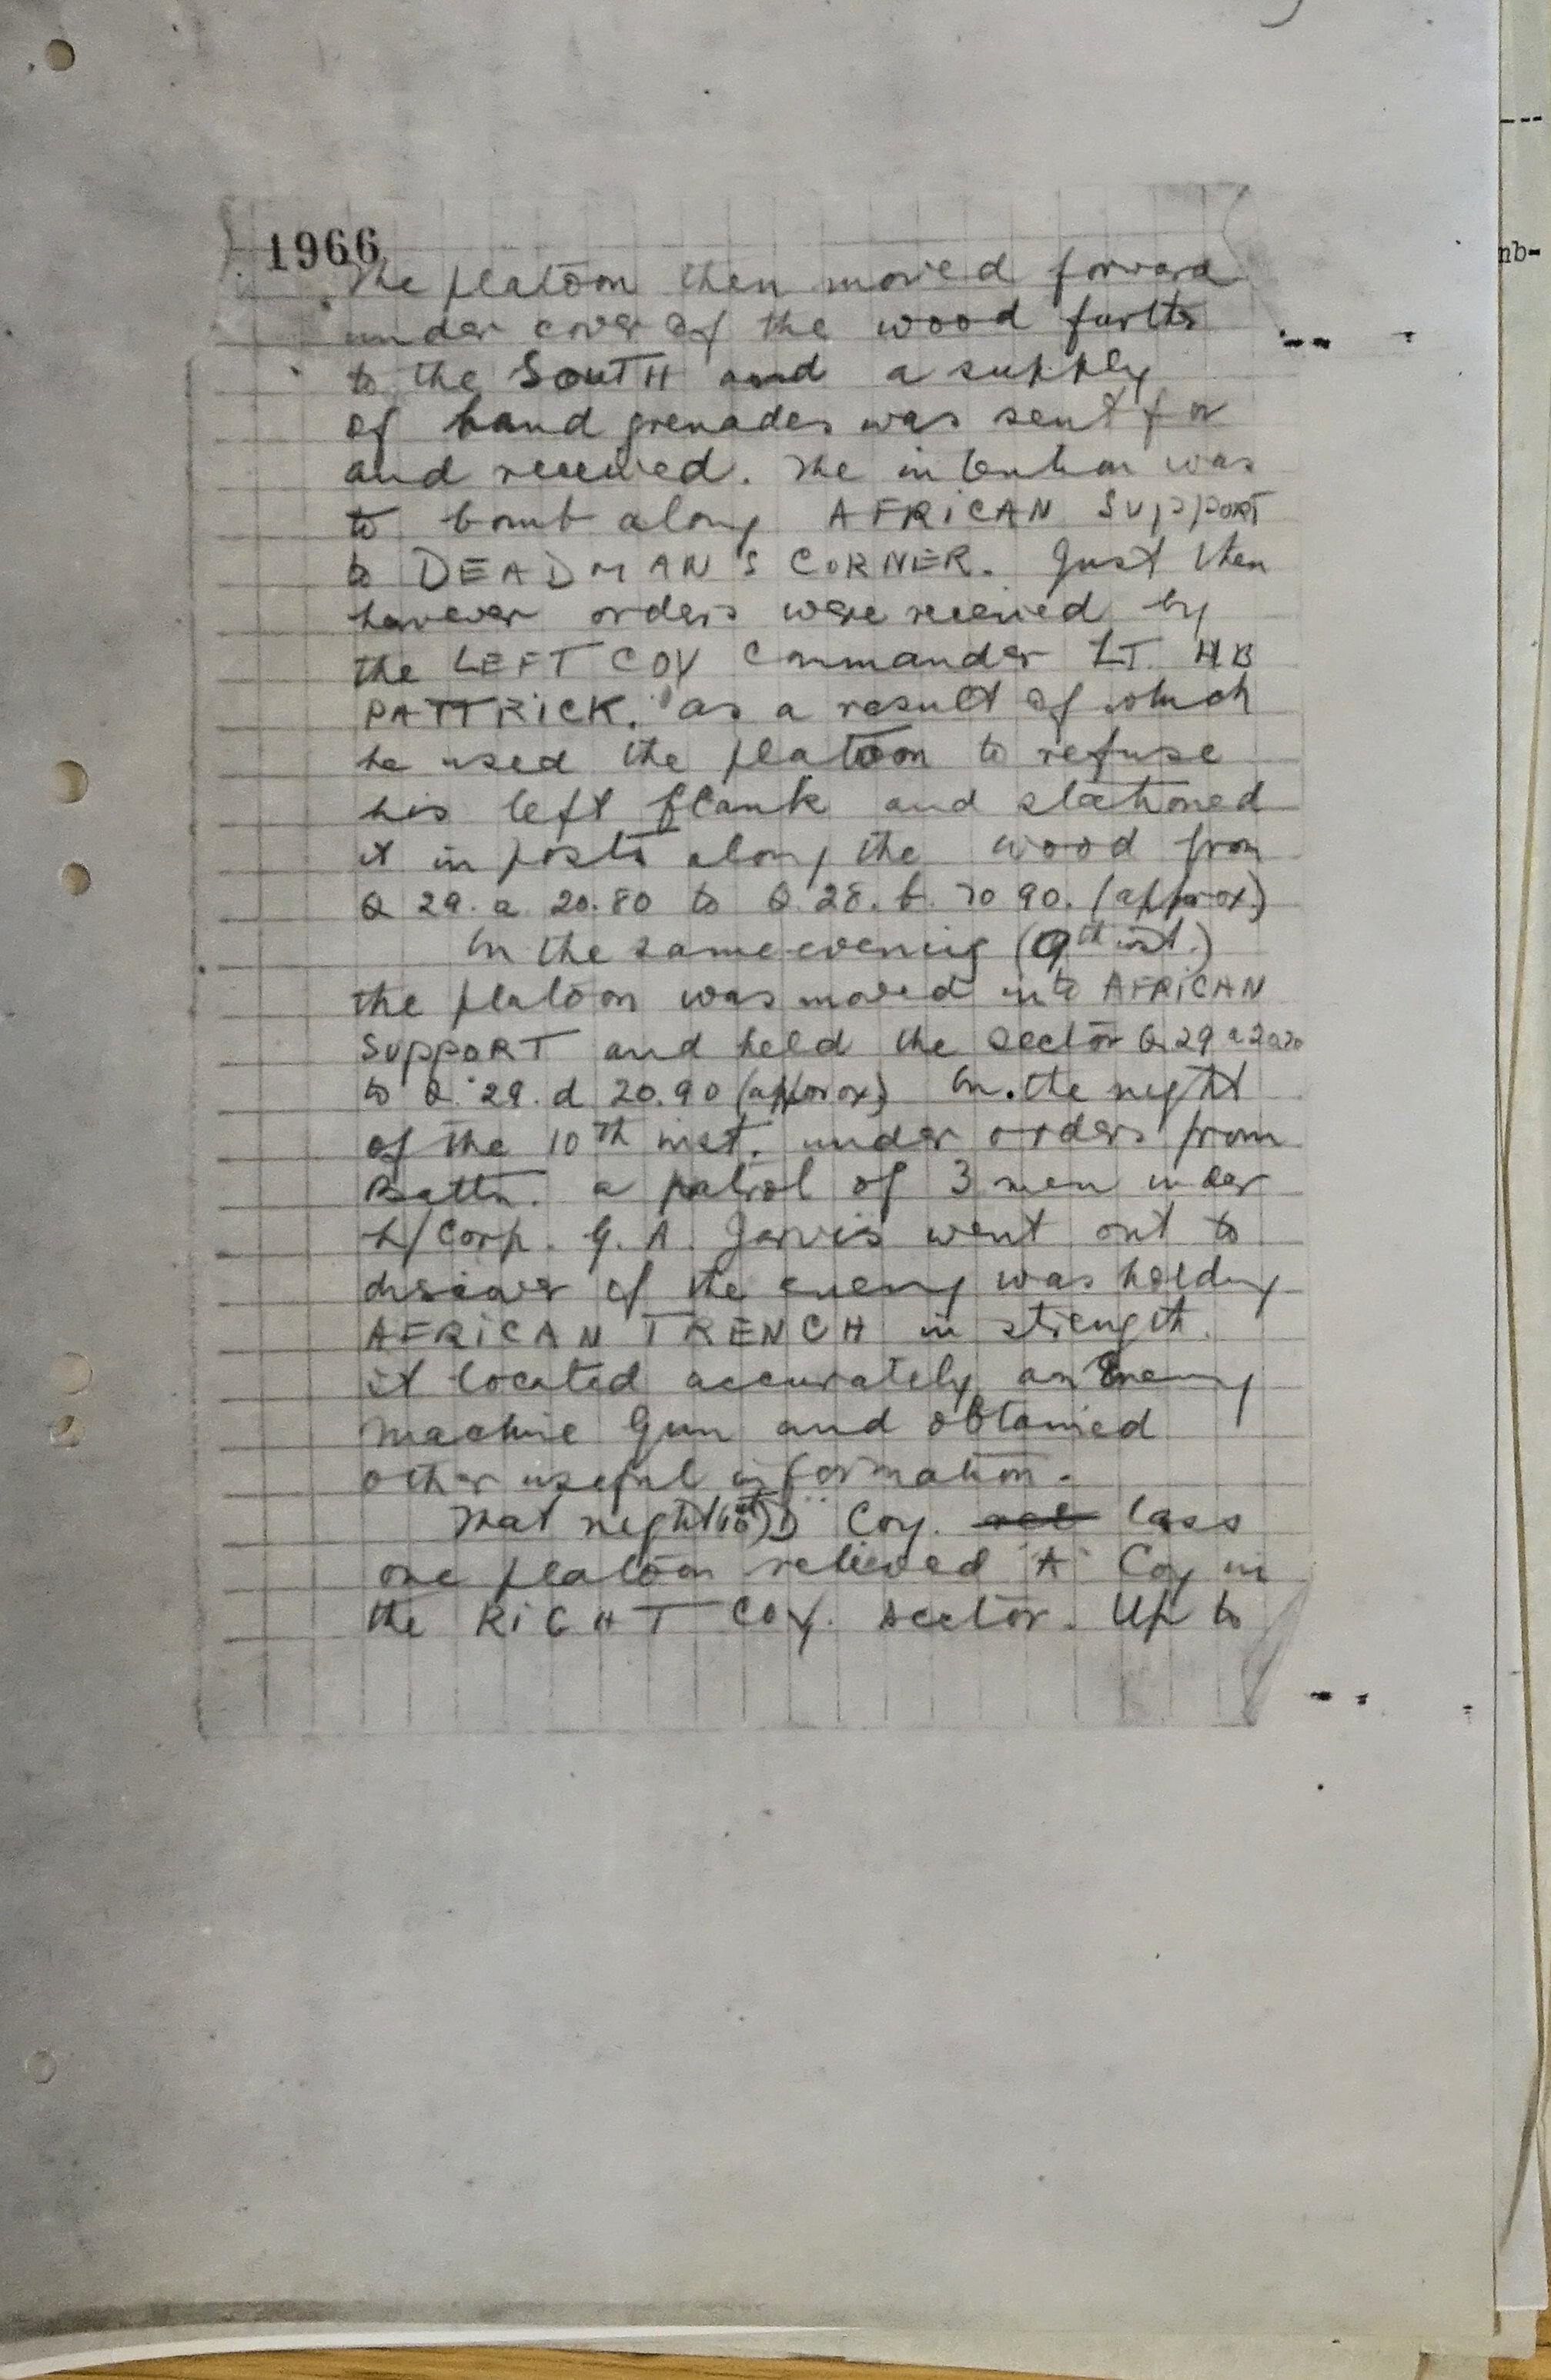 1966
The platoon then moved forward
under cover of the wood further
to the SOUTH and a supply
of hand grenades was sent for
and received. The intention was
to bomb along AFRICAN SUPPORT
to DEADMAN'S CORNER. Just then
however orders were received by
the LEFT COY Commander LT. HB
PATTRICK. as a result of which
he used the platoon to refuse
his left flank and stationed
it in posts along the wood from
Q 29. a. 20.80 to Q. 28. b. 70 90. (approx.)
On the same evening (9th inst.)
the platoon was moved into AFRICAN
SUPPORT and held the sector Q 29 a
to Q. 29. d 20.90 (approx) On the night
of the 10th inst. under orders from
Battn. a patrol of 3 men under
L/Corp. G. A. Jarvis went out to
discover if the enemy was holding
AFRICAN TRENCH in strength.
it located accurately an Enemy
Machine Gun and obtained
other useful information.
That night (10th) D Coy. rel less
one platoon relieved "A" Coy in
the RIGHT COY. sector. Up to
---
nb-